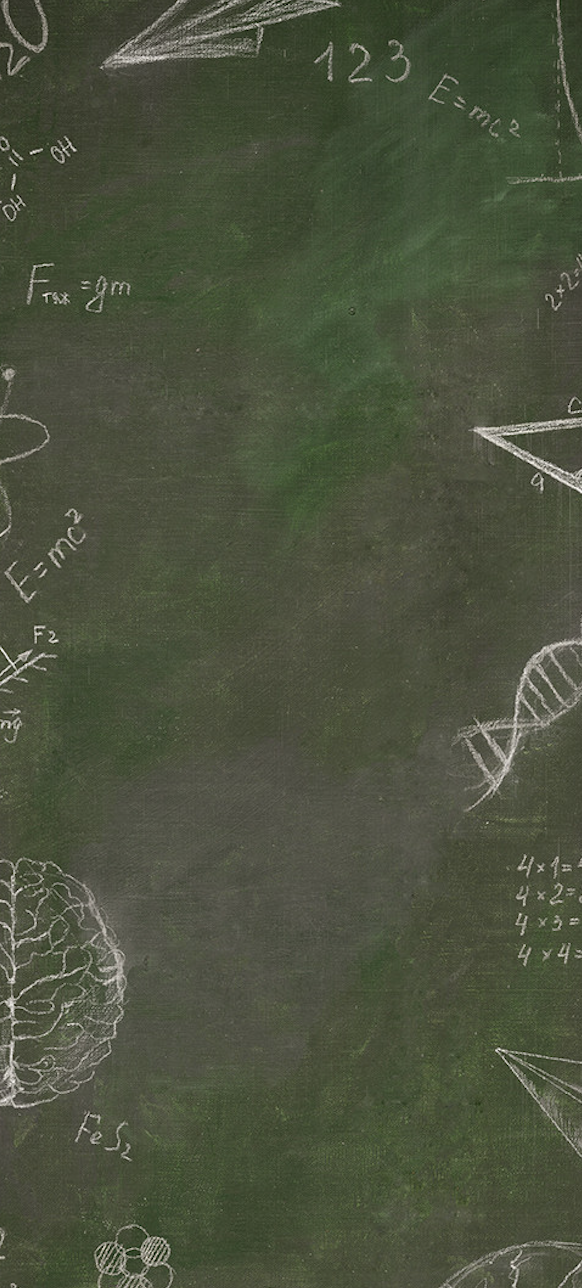 123
E=mc²
OH
OH
Fтяж=gm
2+2=
c
a
E=mc²
F2
mg
4×1=
4×2=
4×3=
4×4=
FeS₂